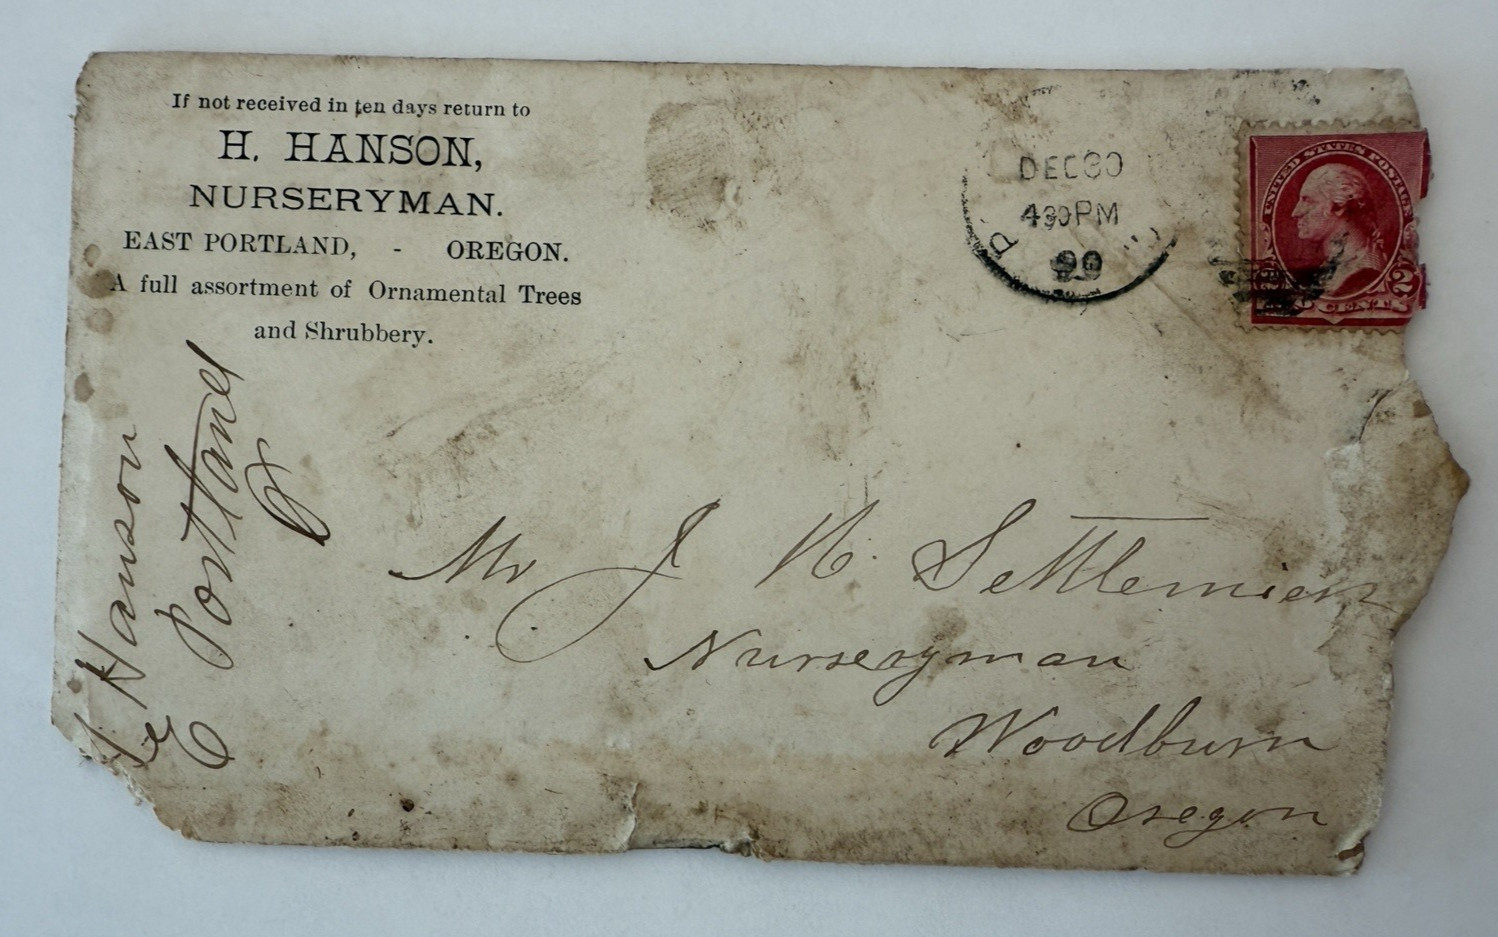 If not received in ten days return to
H. HANSON,
NURSERYMAN.
EAST PORTLAND, - OREGON.
A full assortment of Ornamental Trees
and Shrubbery.
DEC 30
430PM
UNITED STATES POSTAGE
2 CENTS 2
Hanson
E Portland
Mr J H. Settlemier
Nurseryman
Woodburn
Oregon